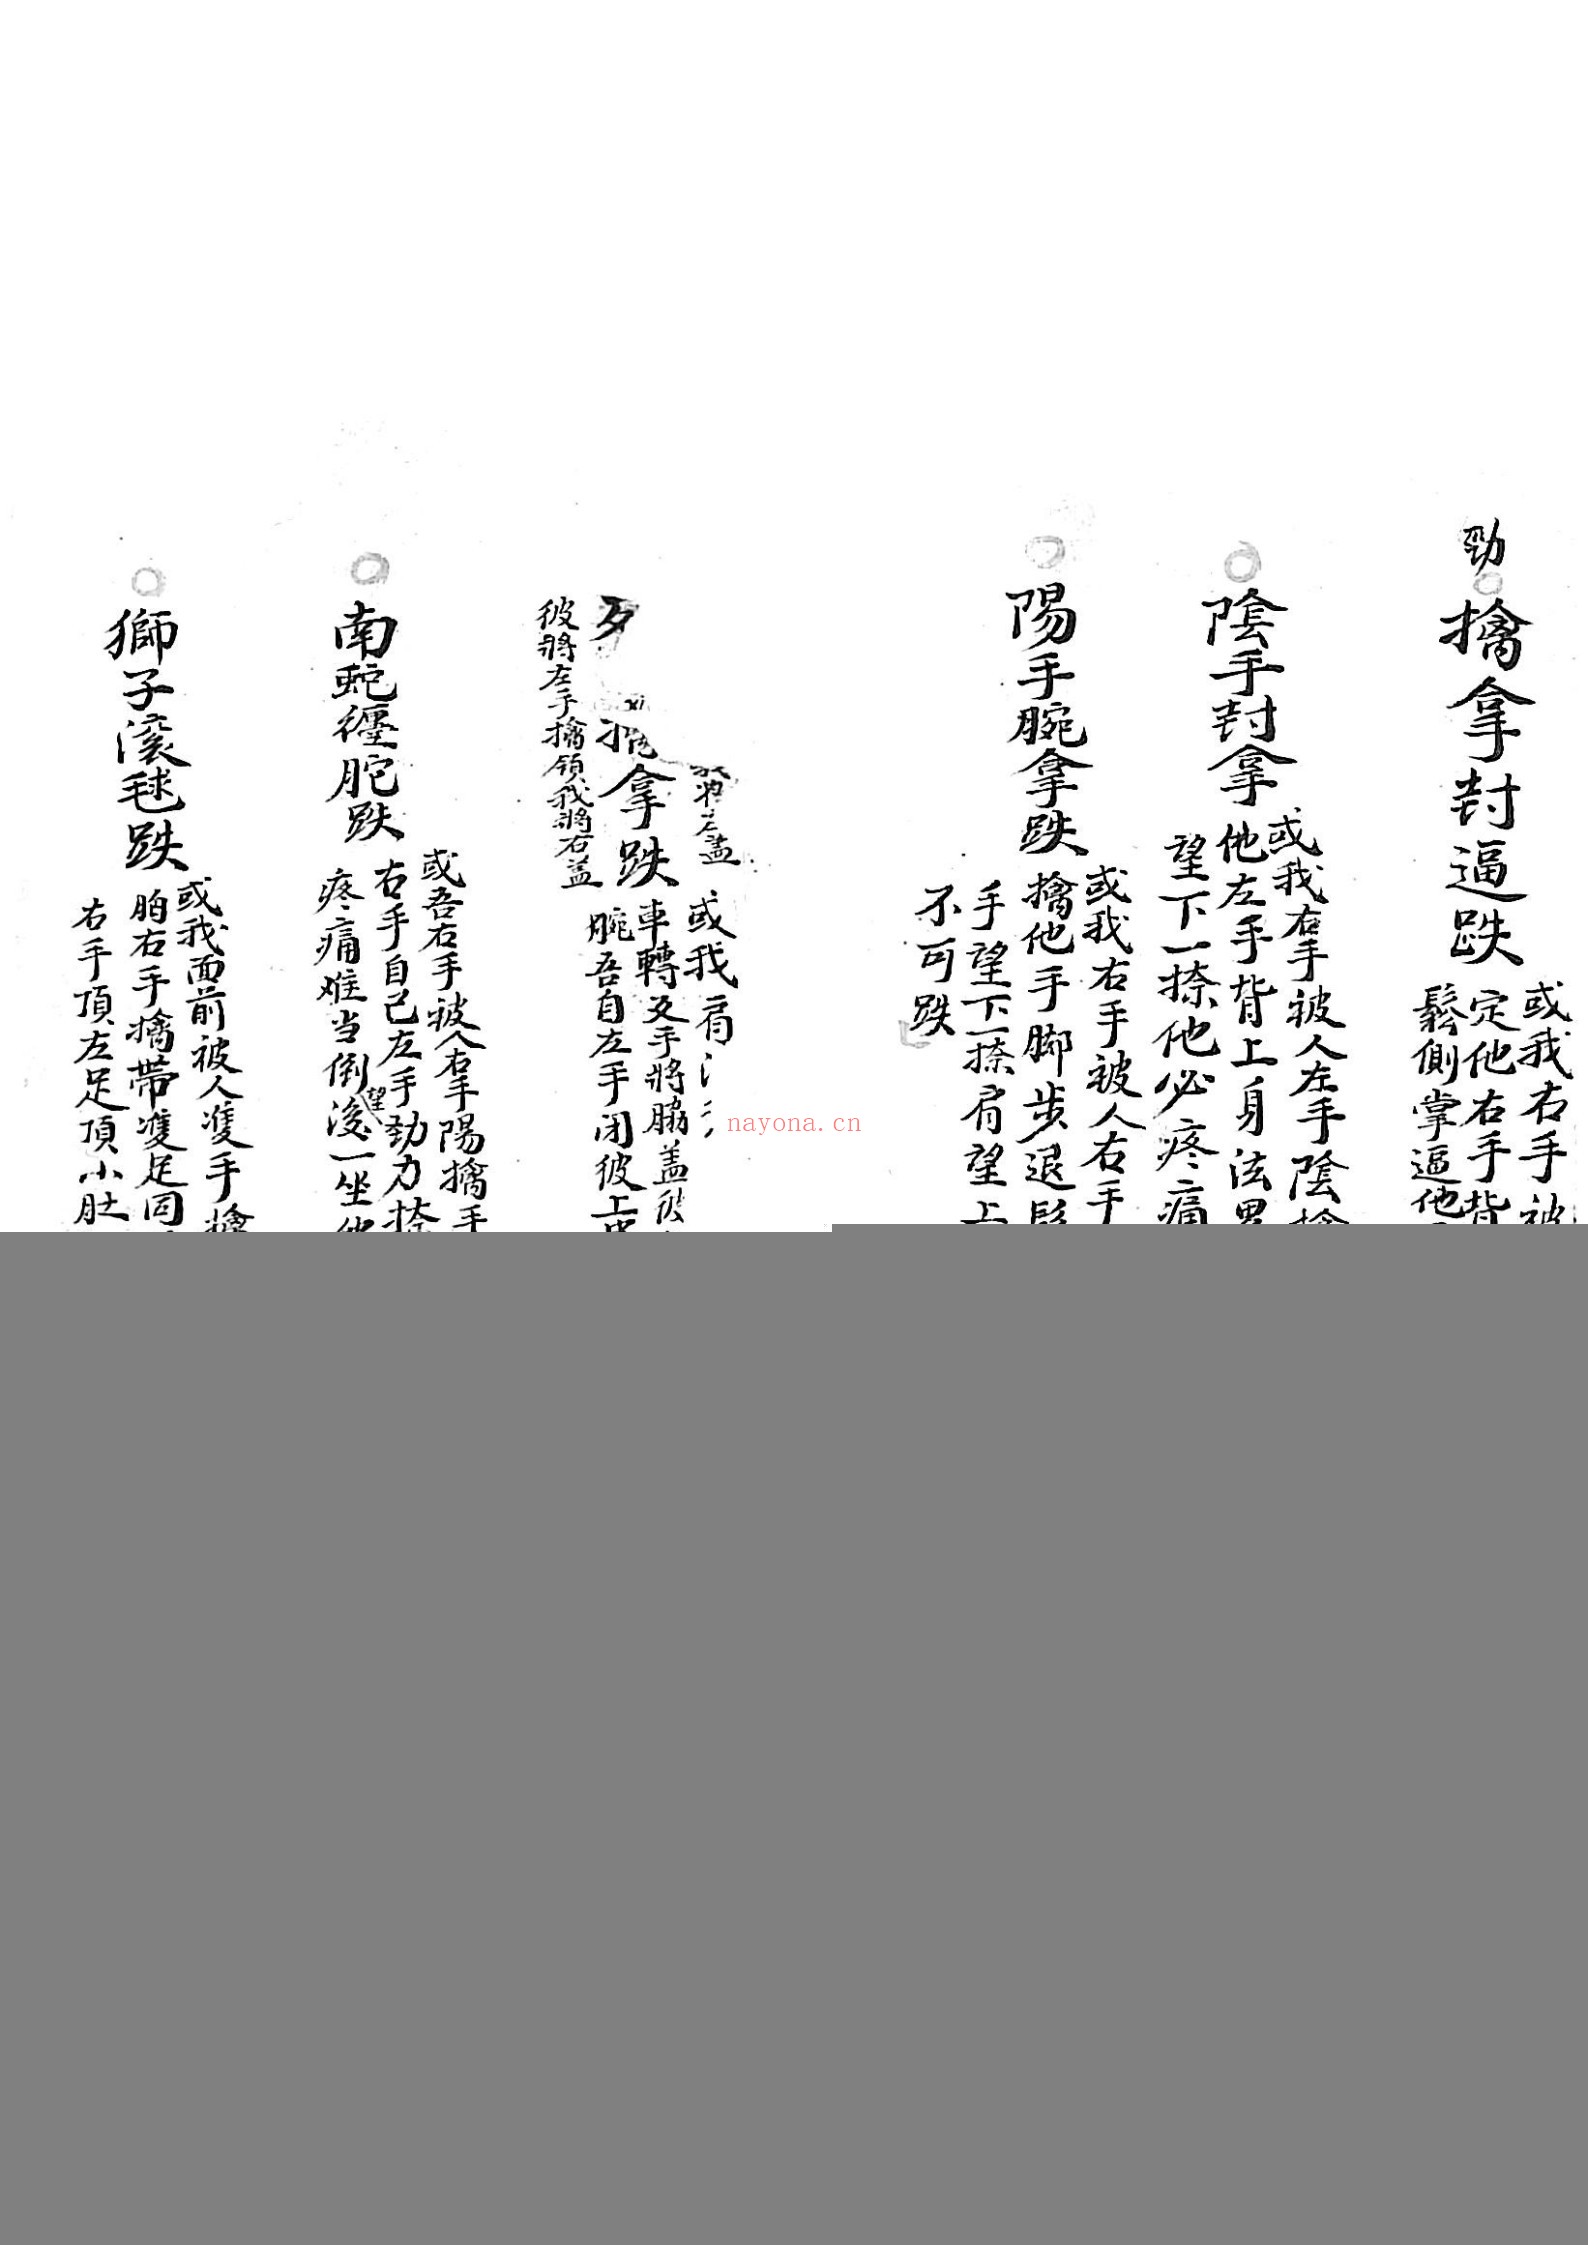 勁
擒拿封逼跌
或我右手被
定他右手背
鬆側掌逼他
陰手封拿
或我右手被人左手陰擒
他左手背上身法
望下一捺他必疼痛
陽手腕拿跌
或我右手被人右手
擒他手脚步退
手望下一捺肩望上
不可跌
拿跌
盖
或我肩
車轉叉手將脇盖彼
腕吾自左手闭彼上
彼將左手擒領我將右盖
南蛇纏腿跌
或吾右手被人右手陽擒手
右手自己左手勁力捺
疼痛难当倒望後一坐他
獅子滚毬跌
或我面前被人雙手擒
胸右手擒帶雙足同
右手頂左足頂小肚
nayona.cn